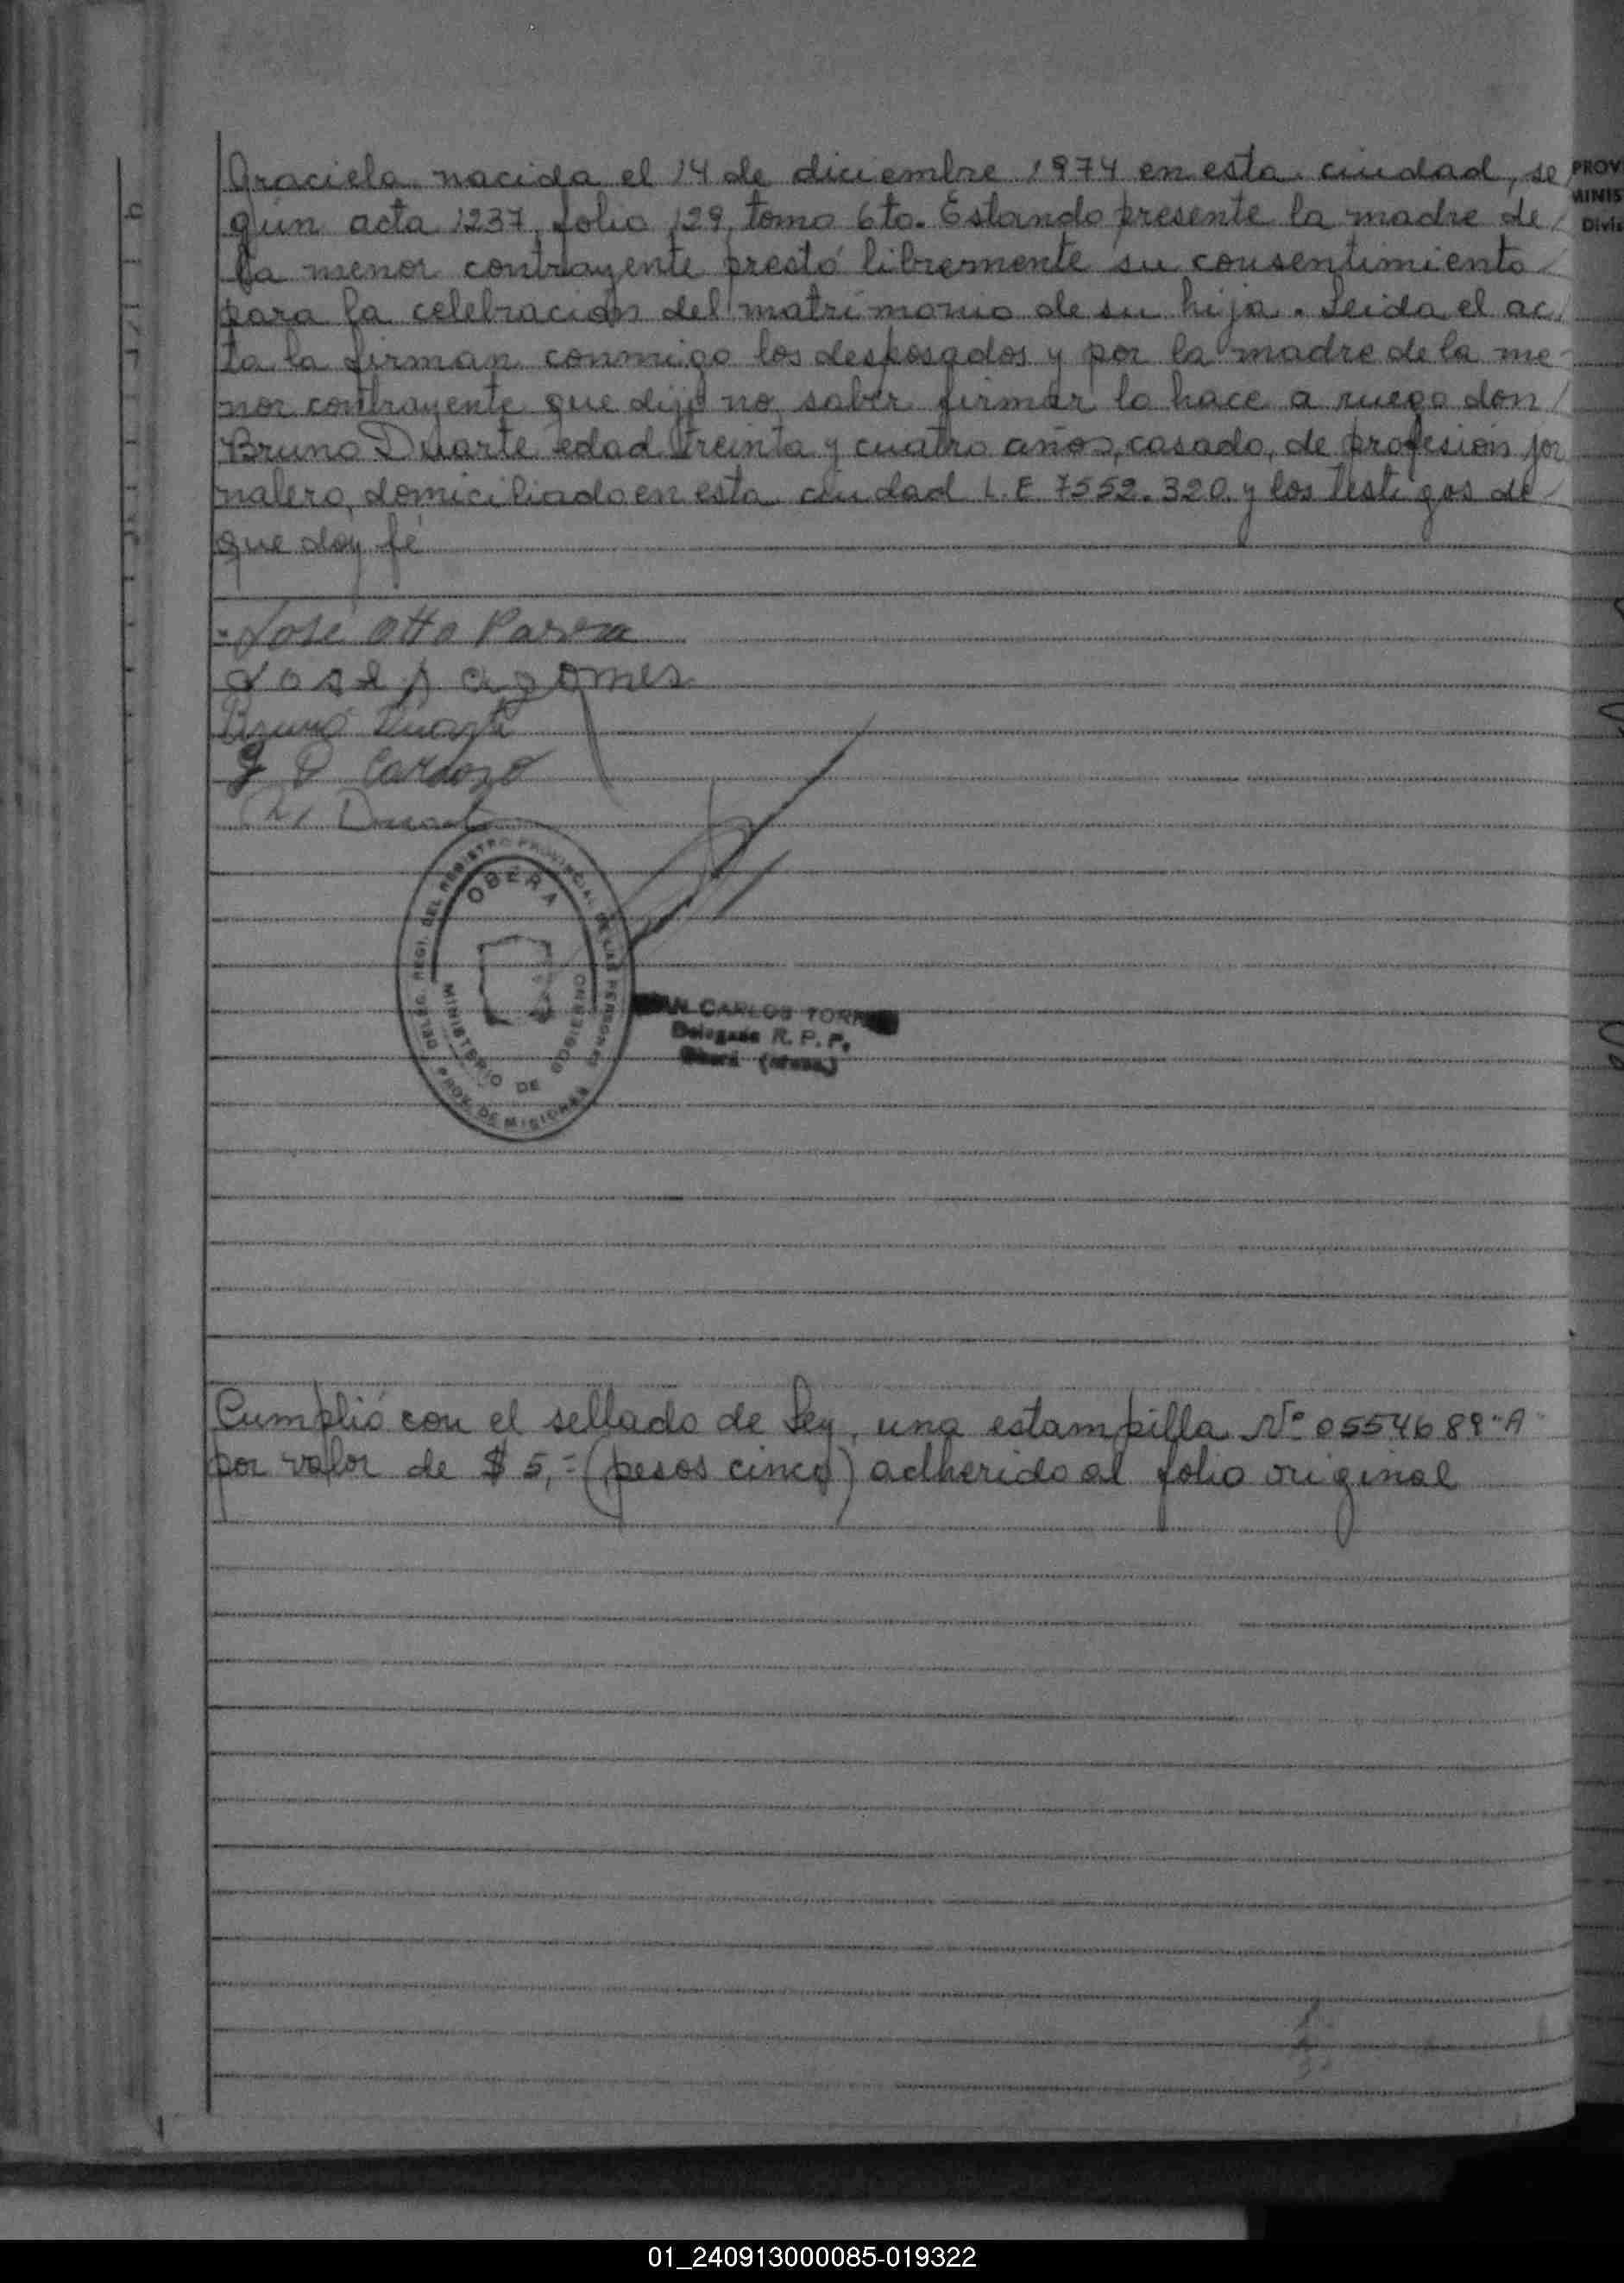 Graciela nacida el 14 de diciembre 1974 en esta ciudad, se
gún acta 1237, folio 129, tomo 6to. Estando presente la madre de
la menor contrayente prestó libremente su consentimiento
para la celebración del matrimonio de su hija. Leida el ac
ta la firman conmigo los desposados y por la madre de la me
nor contrayente que dijo no saber firmar lo hace a ruego don
Bruno Duarte edad treinta y cuatro años, casado, de profesión jor
nalero, domiciliado en esta ciudad L.E 7552.320 y los testigos de
que doy fé
José Otto
Bruno Duarte
Cardozo
Duarte
DELEG. REGI. DEL REGISTRO PROVINCIAL DE LAS PERSONAS
OBERA
MINISTERIO DE GOBIERNO
PROV. DE MISIONES
CARLOS
Delegado R. P. P.
Cumplió con el sellado de Ley, una estampilla Nº 0554689"A"
por valor de $ 5,= (pesos cinco) adherido al folio original
PROV
MINIS
Divis
01_240913000085-019322